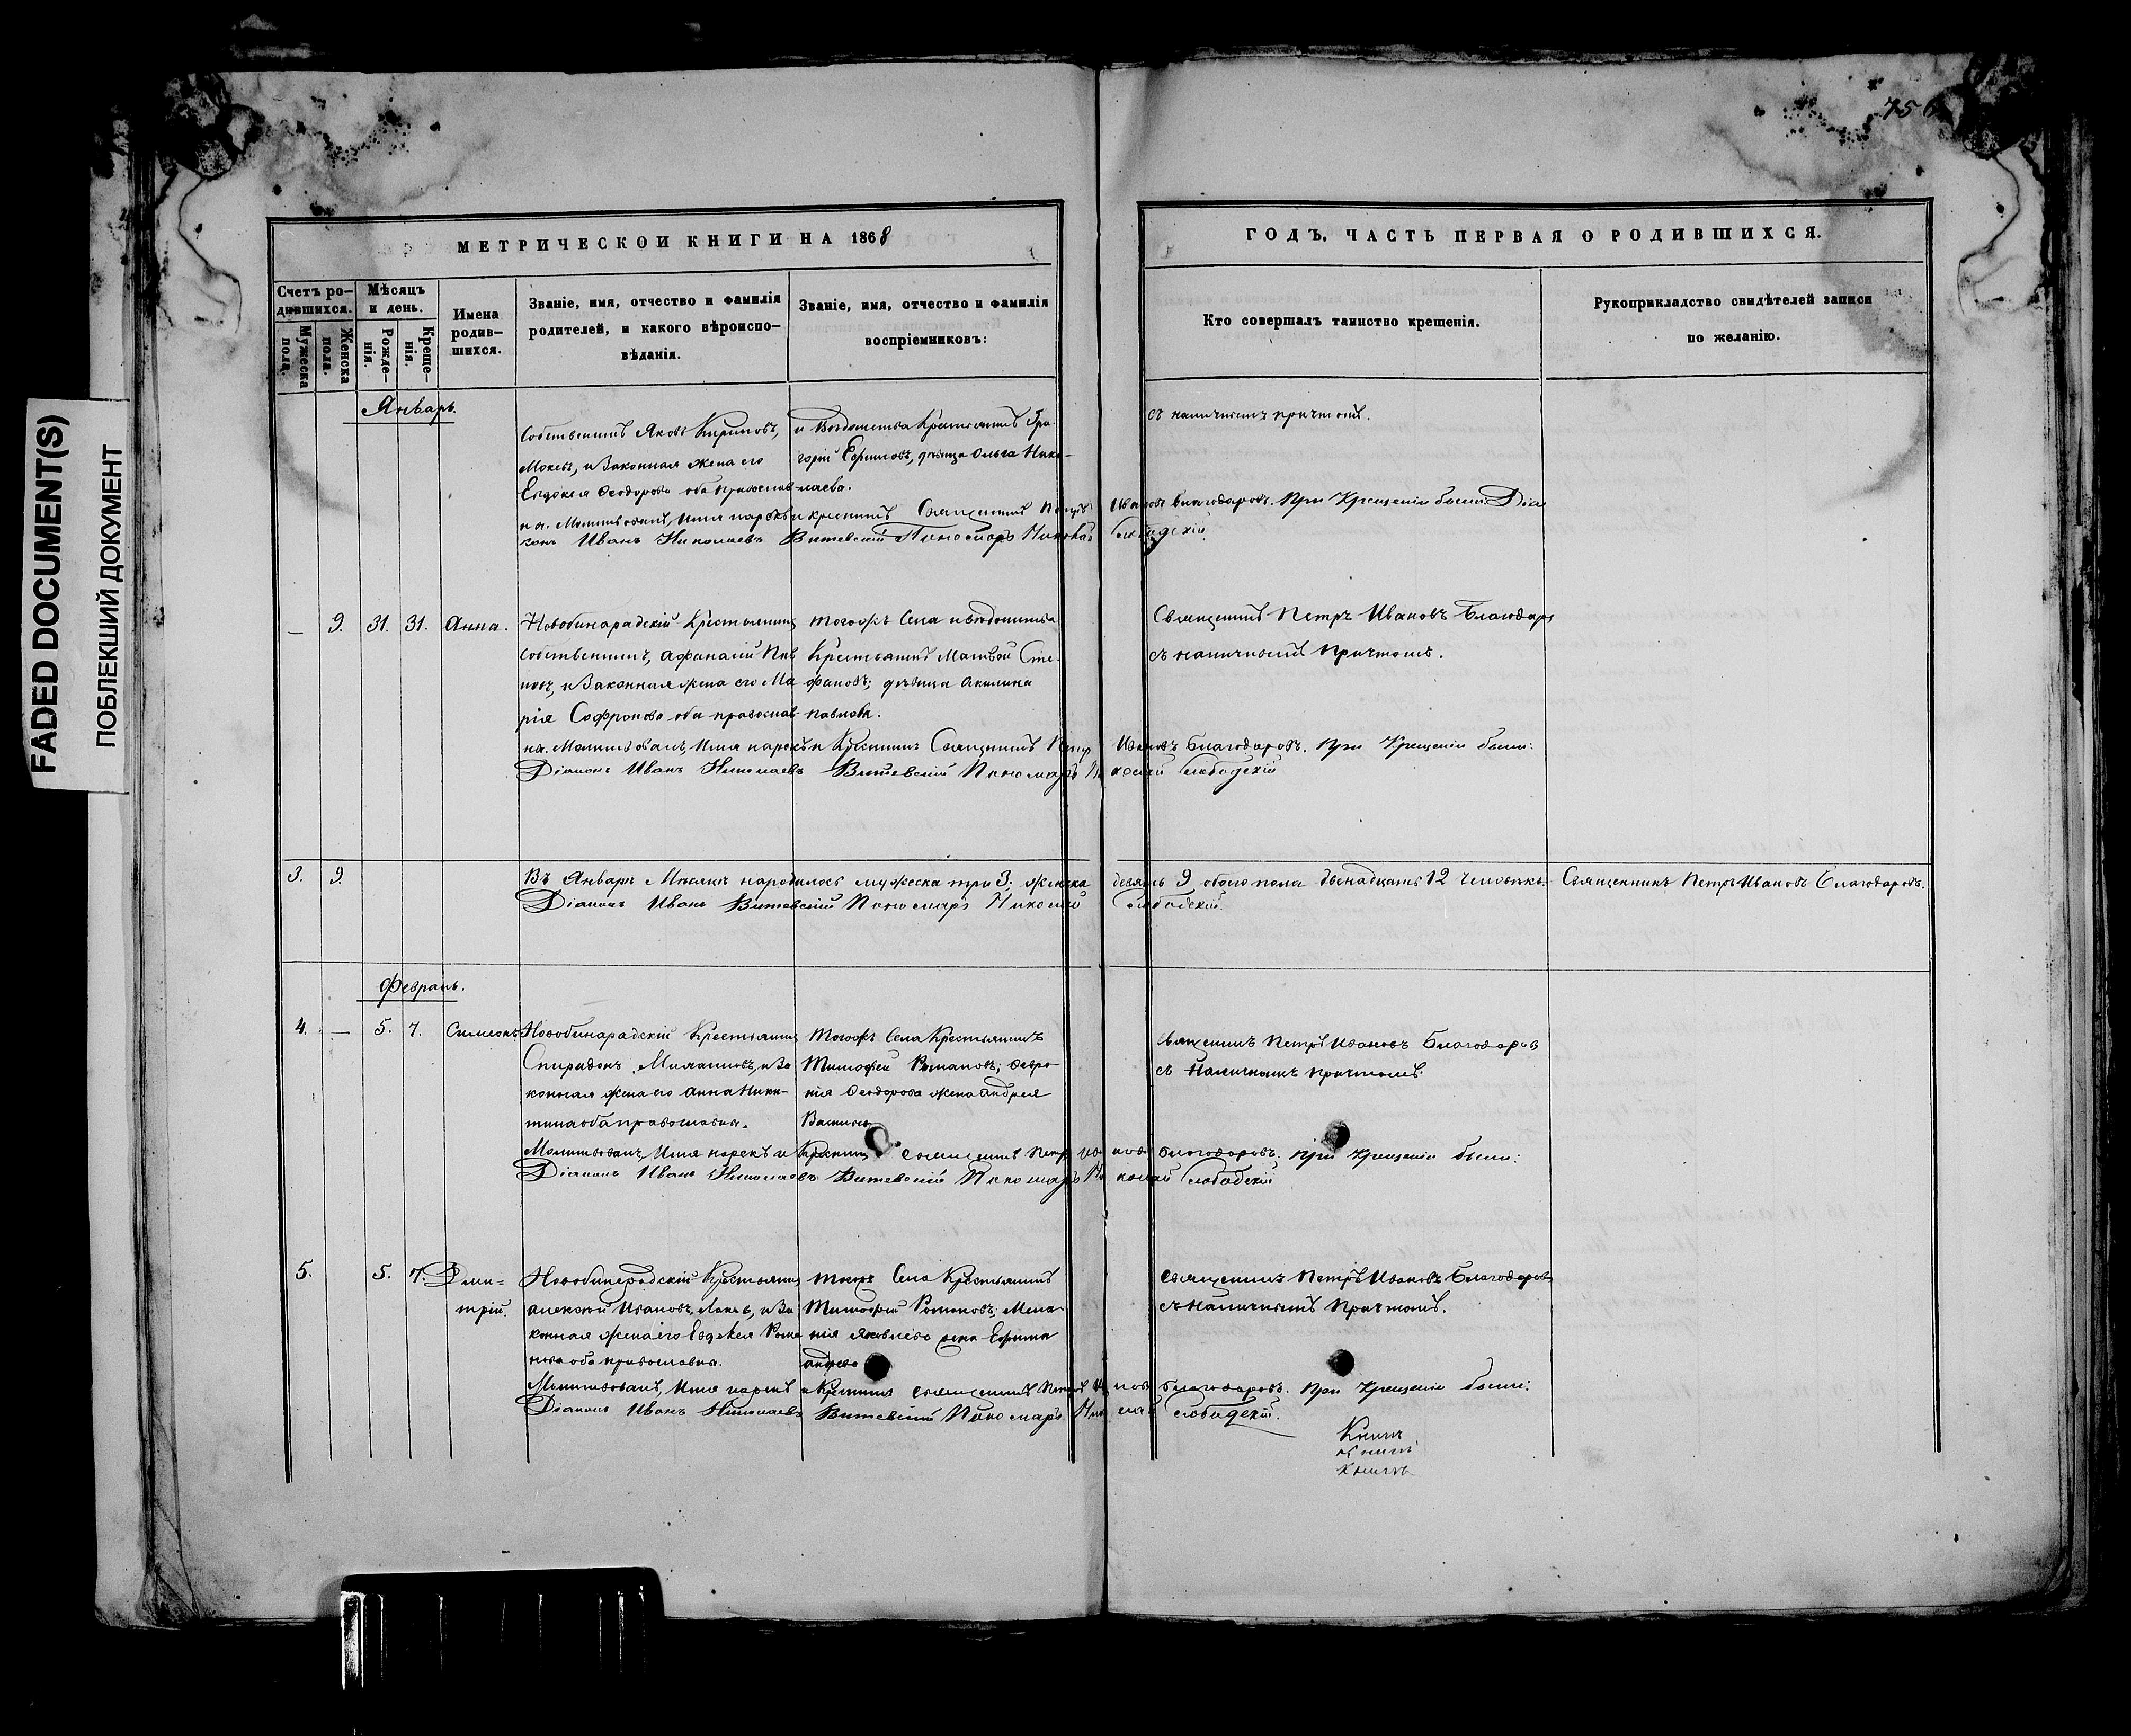 756
FADED DOCUMENT(S)
ПОБЛЕКШИЙ ДОКУМЕНТ
МЕТРИЧЕСКОИ КНИГИ НА 1868
ГОДЪ, ЧАСТЬ ПЕРВАЯ О РОДИВШИХСЯ.
Счетъ ро-
дившихся.
Мужеска пола.
Женска пола.
Мѣсяцъ
и день.
Рожде-
нія.
Креще-
нія.
Имена
родив-
шихся.
Званіе, имя, отчество и фамилія
родителей, и какого вѣроиспо-
вѣданія.
Званіе, имя, отчество и фамилія
воспріемниковъ:
Кто совершалъ таинство крещенія.
Рукоприкладство свидѣтелей записи
по желанію.
Январь.
Собственникъ Яковъ
и Законная жена его
Евдокея Феодорова оба православ-
и Крестьянинъ Гри-
горій Ефимовъ, дѣвица Ольга Нико-
лаева.
съ наличнымъ причтомъ.
на. Молитвовалъ, Имя нарекъ и крестилъ Священникъ Петръ Ивановъ Благодаровъ. При Крещеніи были: Діа
конъ Иванъ Николаевъ Витевскій Пономарь Николай Слободскій.
— 9. 31. 31. Анна.
Новобинарадскій Крестьянинъ
собственникъ, Афанасій
и Законная жена его Ма
рія Софронова оба православ
тогожъ Села
Крестьянинъ Матвѣй Сте-
фановъ; дѣвица Акилина
Павлова.
Священникъ Петръ Ивановъ Благодаръ
съ наличнымъ Причтомъ.
на. Молитвовалъ, Имя нарекъ и Крестилъ Священникъ Петръ Ивановъ Благодаровъ. При Крещеніи были:
Діаконъ Иванъ Николаевъ Витевскій Пономарь Николай Слободскій
3. 9. Въ Январѣ Мѣсяцѣ народилось мужеска три 3; женска девять 9 обоего пола двенадцать 12 человѣкъ. Священникъ Петръ Ивановъ Благодаровъ.
Діаконъ Иванъ Витевскій Пономарь Николай Слободскій.
Февраль.
4. — 5. 7. Симеонъ
Новобинарадскій Крестьянинъ
Спиридонъ и За
конная жена его Анна Ники-
тина оба православны.
Тогожъ Села Крестьянинъ
Тимофей Романовъ; Февро
нія Феодорова жена Андрея
Священникъ Петръ Ивановъ Благодаровъ
съ Наличнымъ Причтомъ.
Молитвовалъ, Имя нарекъ и Крестилъ Священникъ Петръ Ивановъ Благодаровъ. При Крещеніи были:
Діаконъ Иванъ Николаевъ Витевскій Пономарь Николай Слободскій
5. 5. 7. Дми-
трій.
Новобинарадскій Крестьянинъ
Алексѣй Ивановъ и За
конная жена его Евдокея Рома
нова оба православна.
тогожъ Села Крестьянинъ
Тимофей Романовъ; Мела-
нія Яковлева жена Ефима
Священникъ Петръ Ивановъ Благодаровъ
съ наличнымъ Причтомъ.
Молитвовалъ, Имя нарекъ и Крестилъ Священникъ Петръ Ивановъ Благодаровъ. При Крещеніи были:
Діаконъ Иванъ Николаевъ Витевскій Пономарь Николай Слободскій.